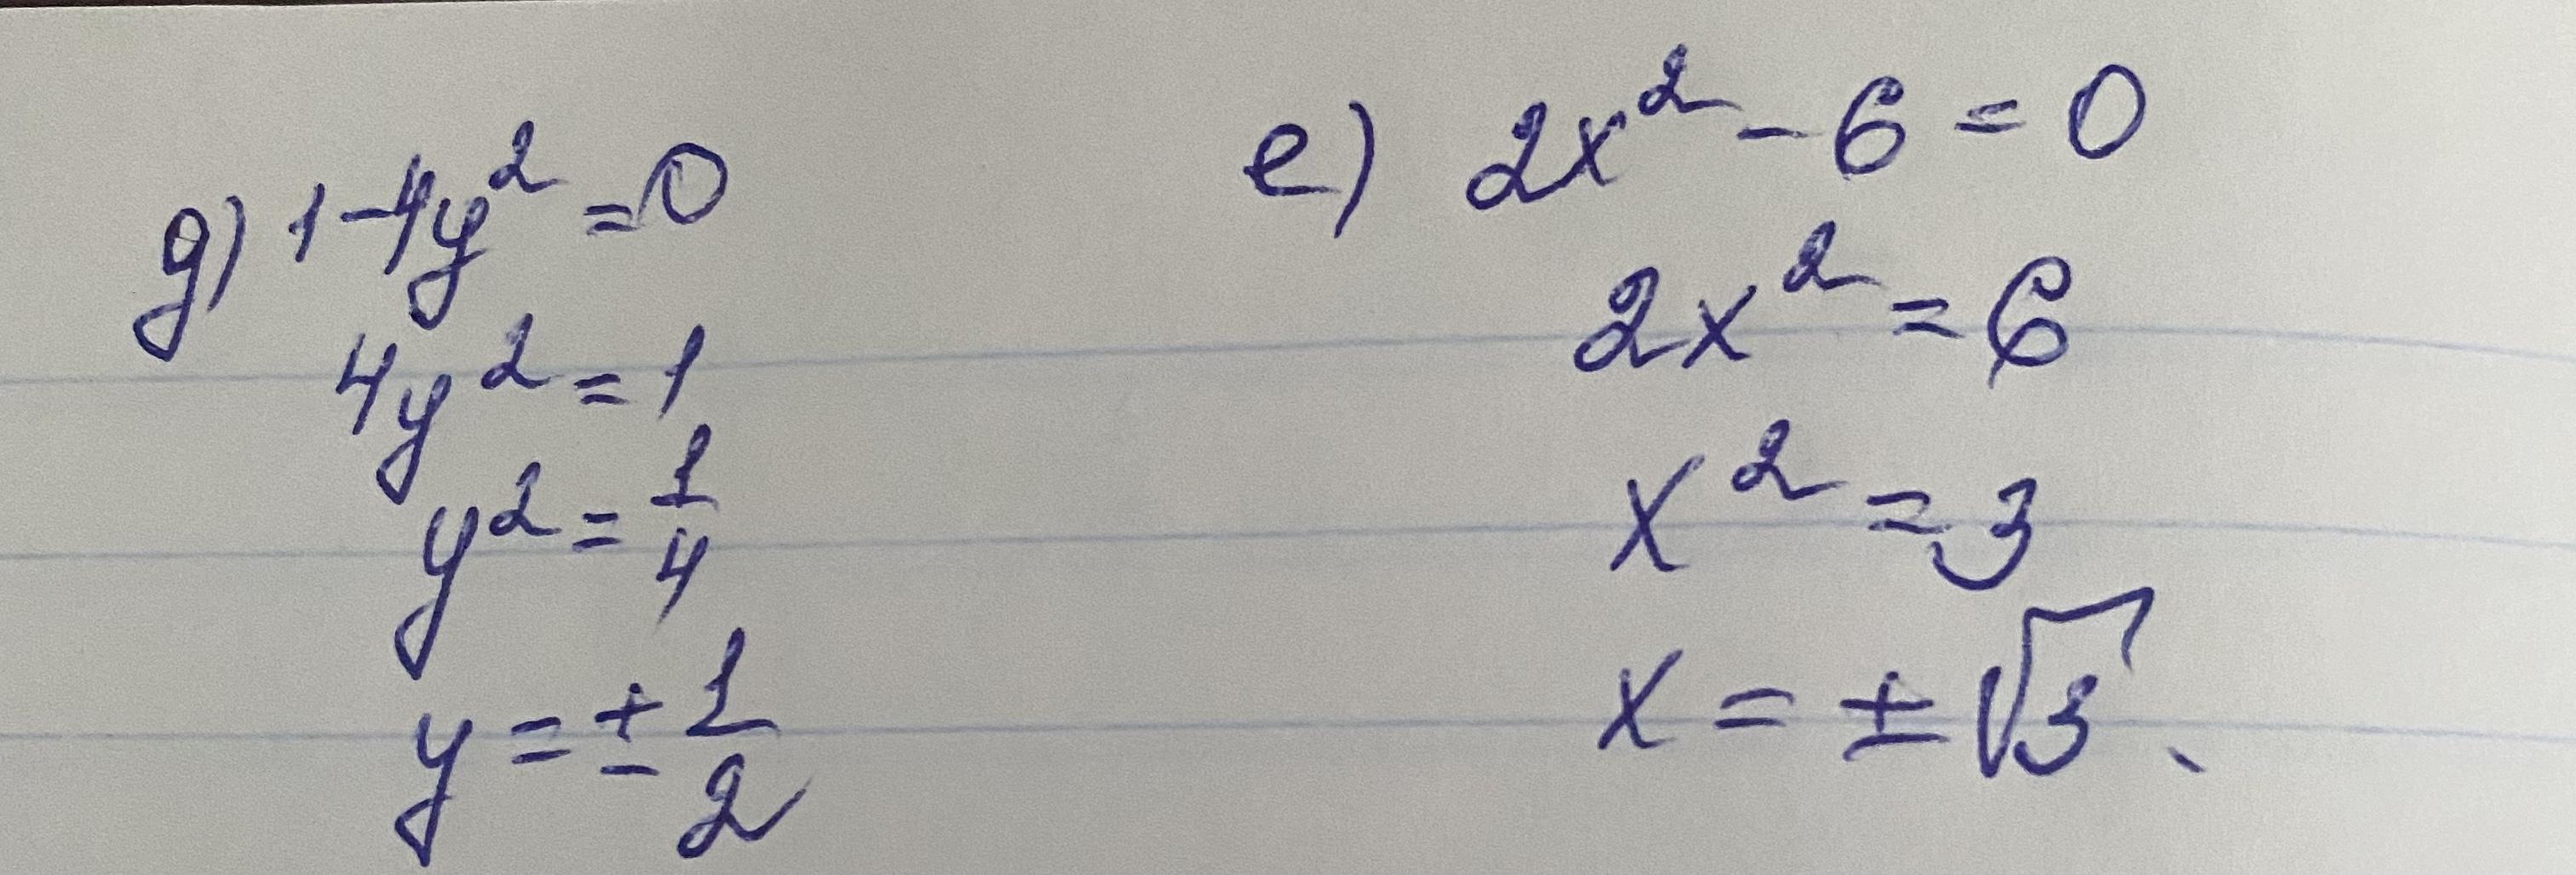 д) 1-4y² = 0
4y² = 1
y² = 1/4
y = ± 1/2
е) 2x² - 6 = 0
2x² = 6
x² = 3
x = ± √3.